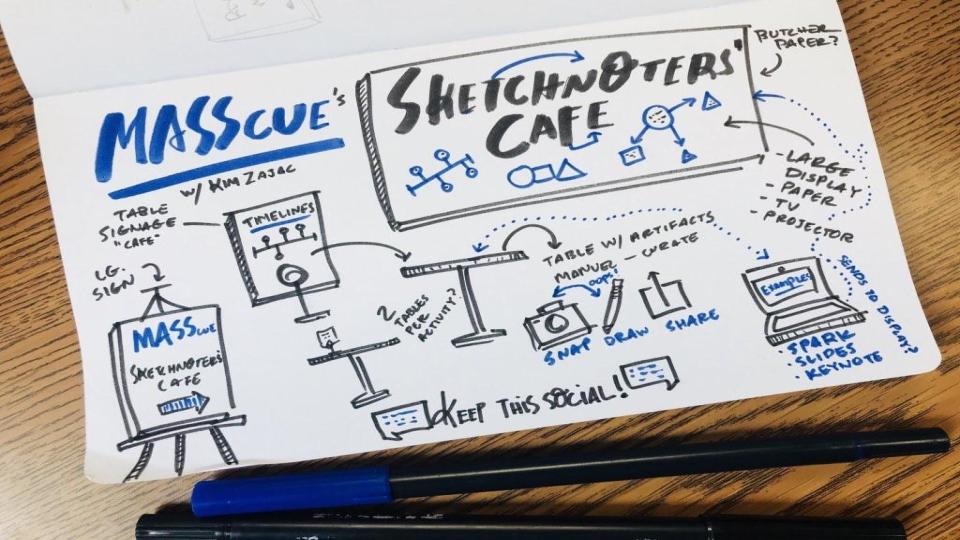 MASSCUE's
w/ KIM ZAJAC
SKETCHNOTERS'
CAFE
BUTCHER
PAPER?
- LARGE
DISPLAY
- PAPER
- TV
- PROJECTOR
TABLE
SIGNAGE
"CAFE"
TIMELINES
LG.
SIGN
MASSCUE
SKETCHNOTER'S
CAFE
2
TABLES
PER
ACTIVITY?
TABLE W/ ARTIFACTS
MANUEL - CURATE
OOPS!
SNAP DRAW SHARE
EXAMPLES
SENDS TO DISPLAY?
• SPARK
• SLIDES
• KEYNOTE
KEEP THIS SOCIAL!